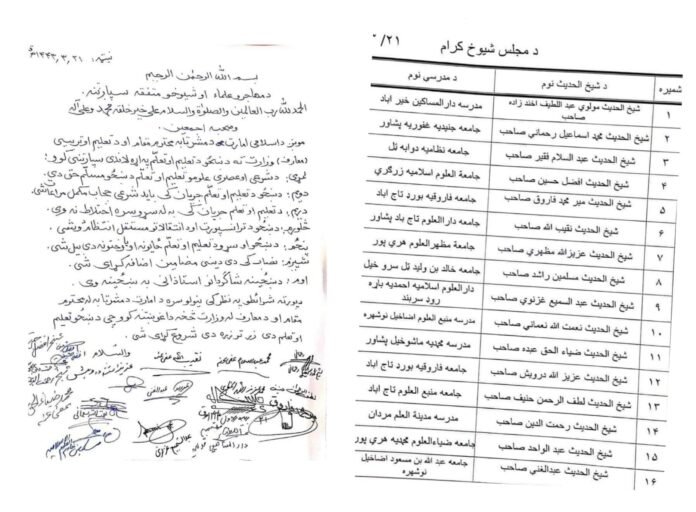 نېټه: ۲۱، ۳، ۱۴۴۳ هـ ق
بسم الله الرحمن الرحیم
د مهاجرو علماء او شیوخو متفقه سپارښتنه.
الحمدلله رب العالمین والصلوٰة والسلام علی خیر خلقه محمد وعلی آله
وصحبه اجمعین.
مونږ د اسلامي امارت د مشرتابه محترم مقام او د تعلیم او تربیې
(معارف) وزارت ته د ښځو د تعلیم او تعلم په اړه لاندې سپارښتنې کوو:
لمړی: د شرعي او عصري علومو تعلیم او تعلم د ښځو مسلم حق دی.
دویم: د ښځو د تعلیم او تعلم جریان کې باید شرعي حجاب کامل مراعات شي.
دریم: د تعلیم او تعلم جریان کې له سړو سره اختلاط نه وي.
څلورم: د ښځو د ترانسپورت او انتقالاتو مستقل انتظام ویشي.
پنځم: د ښځو او سړو د تعلیم او تعلم ځایونه او وختونه دې بیل شي.
شپږم: نصاب کې دې دیني مضامین اضافه کړای شي.
اووم: د ښځینه شاګردانو استاذانې به ښځینه وي.
پورته شرائطو په نظر کې نیولو سره د امارت د مشرتابه له محترم
مقام او د معارف له وزارت څخه دا غوښتنه کوو چې د ښځو تعلیم
او تعلم دې زر تر زره دې شروع کړای شي.
والسلام
۳/۲۱
د مجلس شیوخ کرام
شمیره د شیخ الحدیث نوم د مدرسې نوم
۱ شیخ الحدیث مولوي عبد اللطیف اخند زاده صاحب مدرسه دارالمساکین خیر اباد
۲ شیخ الحدیث محمد اسماعیل رحماني صاحب جامعه جنیدیه غفوریه پشاور
۳ شیخ الحدیث عبد السلام فقیر صاحب جامعه نظامیه دوابه ټل
۴ شیخ الحدیث افضل حسین صاحب جامعة العلوم اسلامیه زرګري
۵ شیخ الحدیث میر محمد فاروق صاحب جامعه فاروقیه بورد تاج اباد
۶ شیخ الحدیث نقیب الله صاحب جامعه دارالعلوم تاج اباد پشاور
۷ شیخ الحدیث عزیزالله مظهري صاحب جامعة مظهرالعلوم هري پور
۸ شیخ الحدیث مسلمین راشد صاحب جامعه خالد بن ولید ټل سرو خیل
۹ شیخ الحدیث عبد السمیع غزنوي صاحب دارالعلوم اسلامیه احمدیه باړه روډ سربند
۱۰ شیخ الحدیث نعمت الله نعماني صاحب مدرسه منبع العلوم اضاخیل نوشهره
۱۱ شیخ الحدیث ضیاء الحق عبده صاحب مدرسه محمدیه ماشوخیل پشاور
۱۲ شیخ الحدیث عزیز الله درویش صاحب جامعه فاروقیه بورد تاج اباد
۱۳ شیخ الحدیث لطف الرحمن حنیف صاحب جامعه منبع العلوم تاج اباد
۱۴ شیخ الحدیث رحمت الدین صاحب مدرسه مدینة العلم مردان
۱۵ شیخ الحدیث عبد الواحد صاحب جامعه ضیاءالعلوم محمدیه هري پور
۱۶ شیخ الحدیث عبدالغني صاحب جامعه عبد الله بن مسعود اضاخیل نوشهره